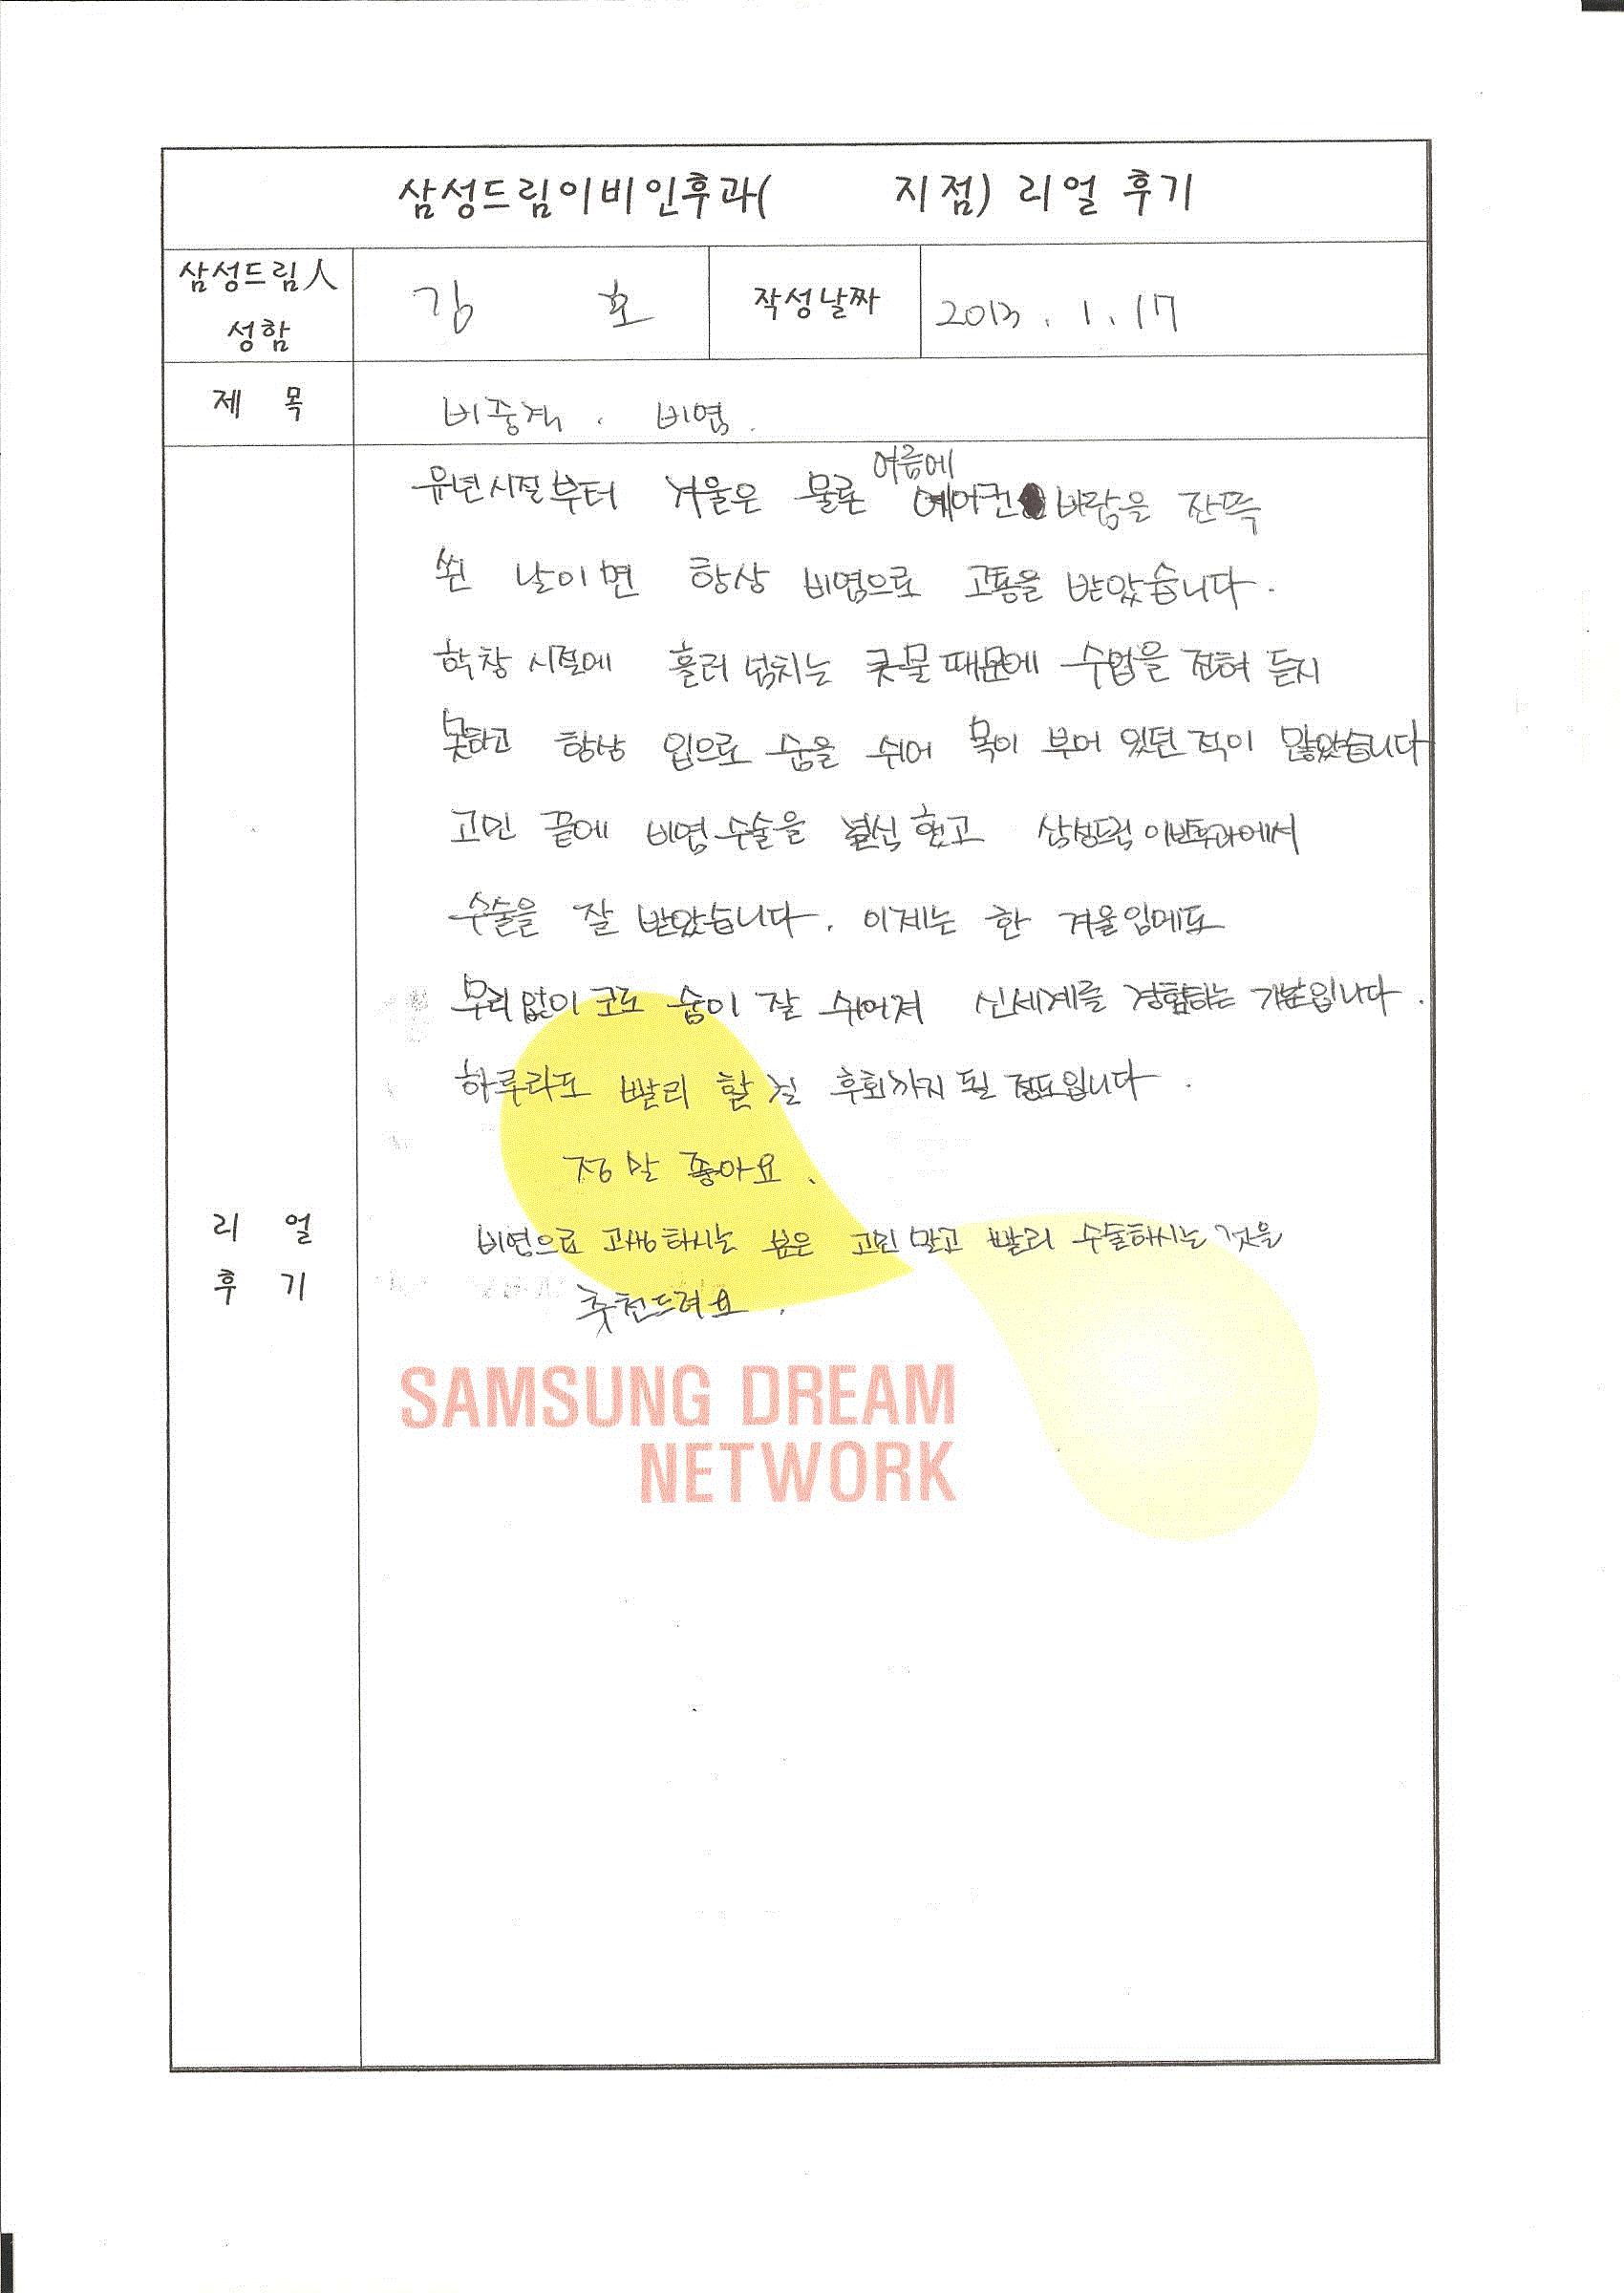 삼성드림이비인후과( 지점) 리얼 후기
삼성드림人
성함
김 호
작성날짜
2013. 1. 17
제 목
비중격. 비염.
여름에
유년시절부터 겨울은 물론 에어컨 바람을 잔뜩
쐰 날이면 항상 비염으로 고통을 받았습니다.
학창 시절에 흘러 넘치는 콧물 때문에 수업을 전혀 듣지
못하고 항상 입으로 숨을 쉬어 목이 부어 있던 적이 많았습니다
고민 끝에 비염 수술을 결심 했고 삼성드림 이비후과에서
수술을 잘 받았습니다. 이제는 한 겨울임에도
무리없이 코로 숨이 잘 쉬어져 신세계를 경험하는 기분입니다.
하루라도 빨리 할 걸 후회까지 될 정도입니다.
정말 좋아요.
비염으로 고생하시는 분은 고민 말고 빨리 수술하시는 것을
추천드려요.
리 얼
후 기
SAMSUNG DREAM
NETWORK